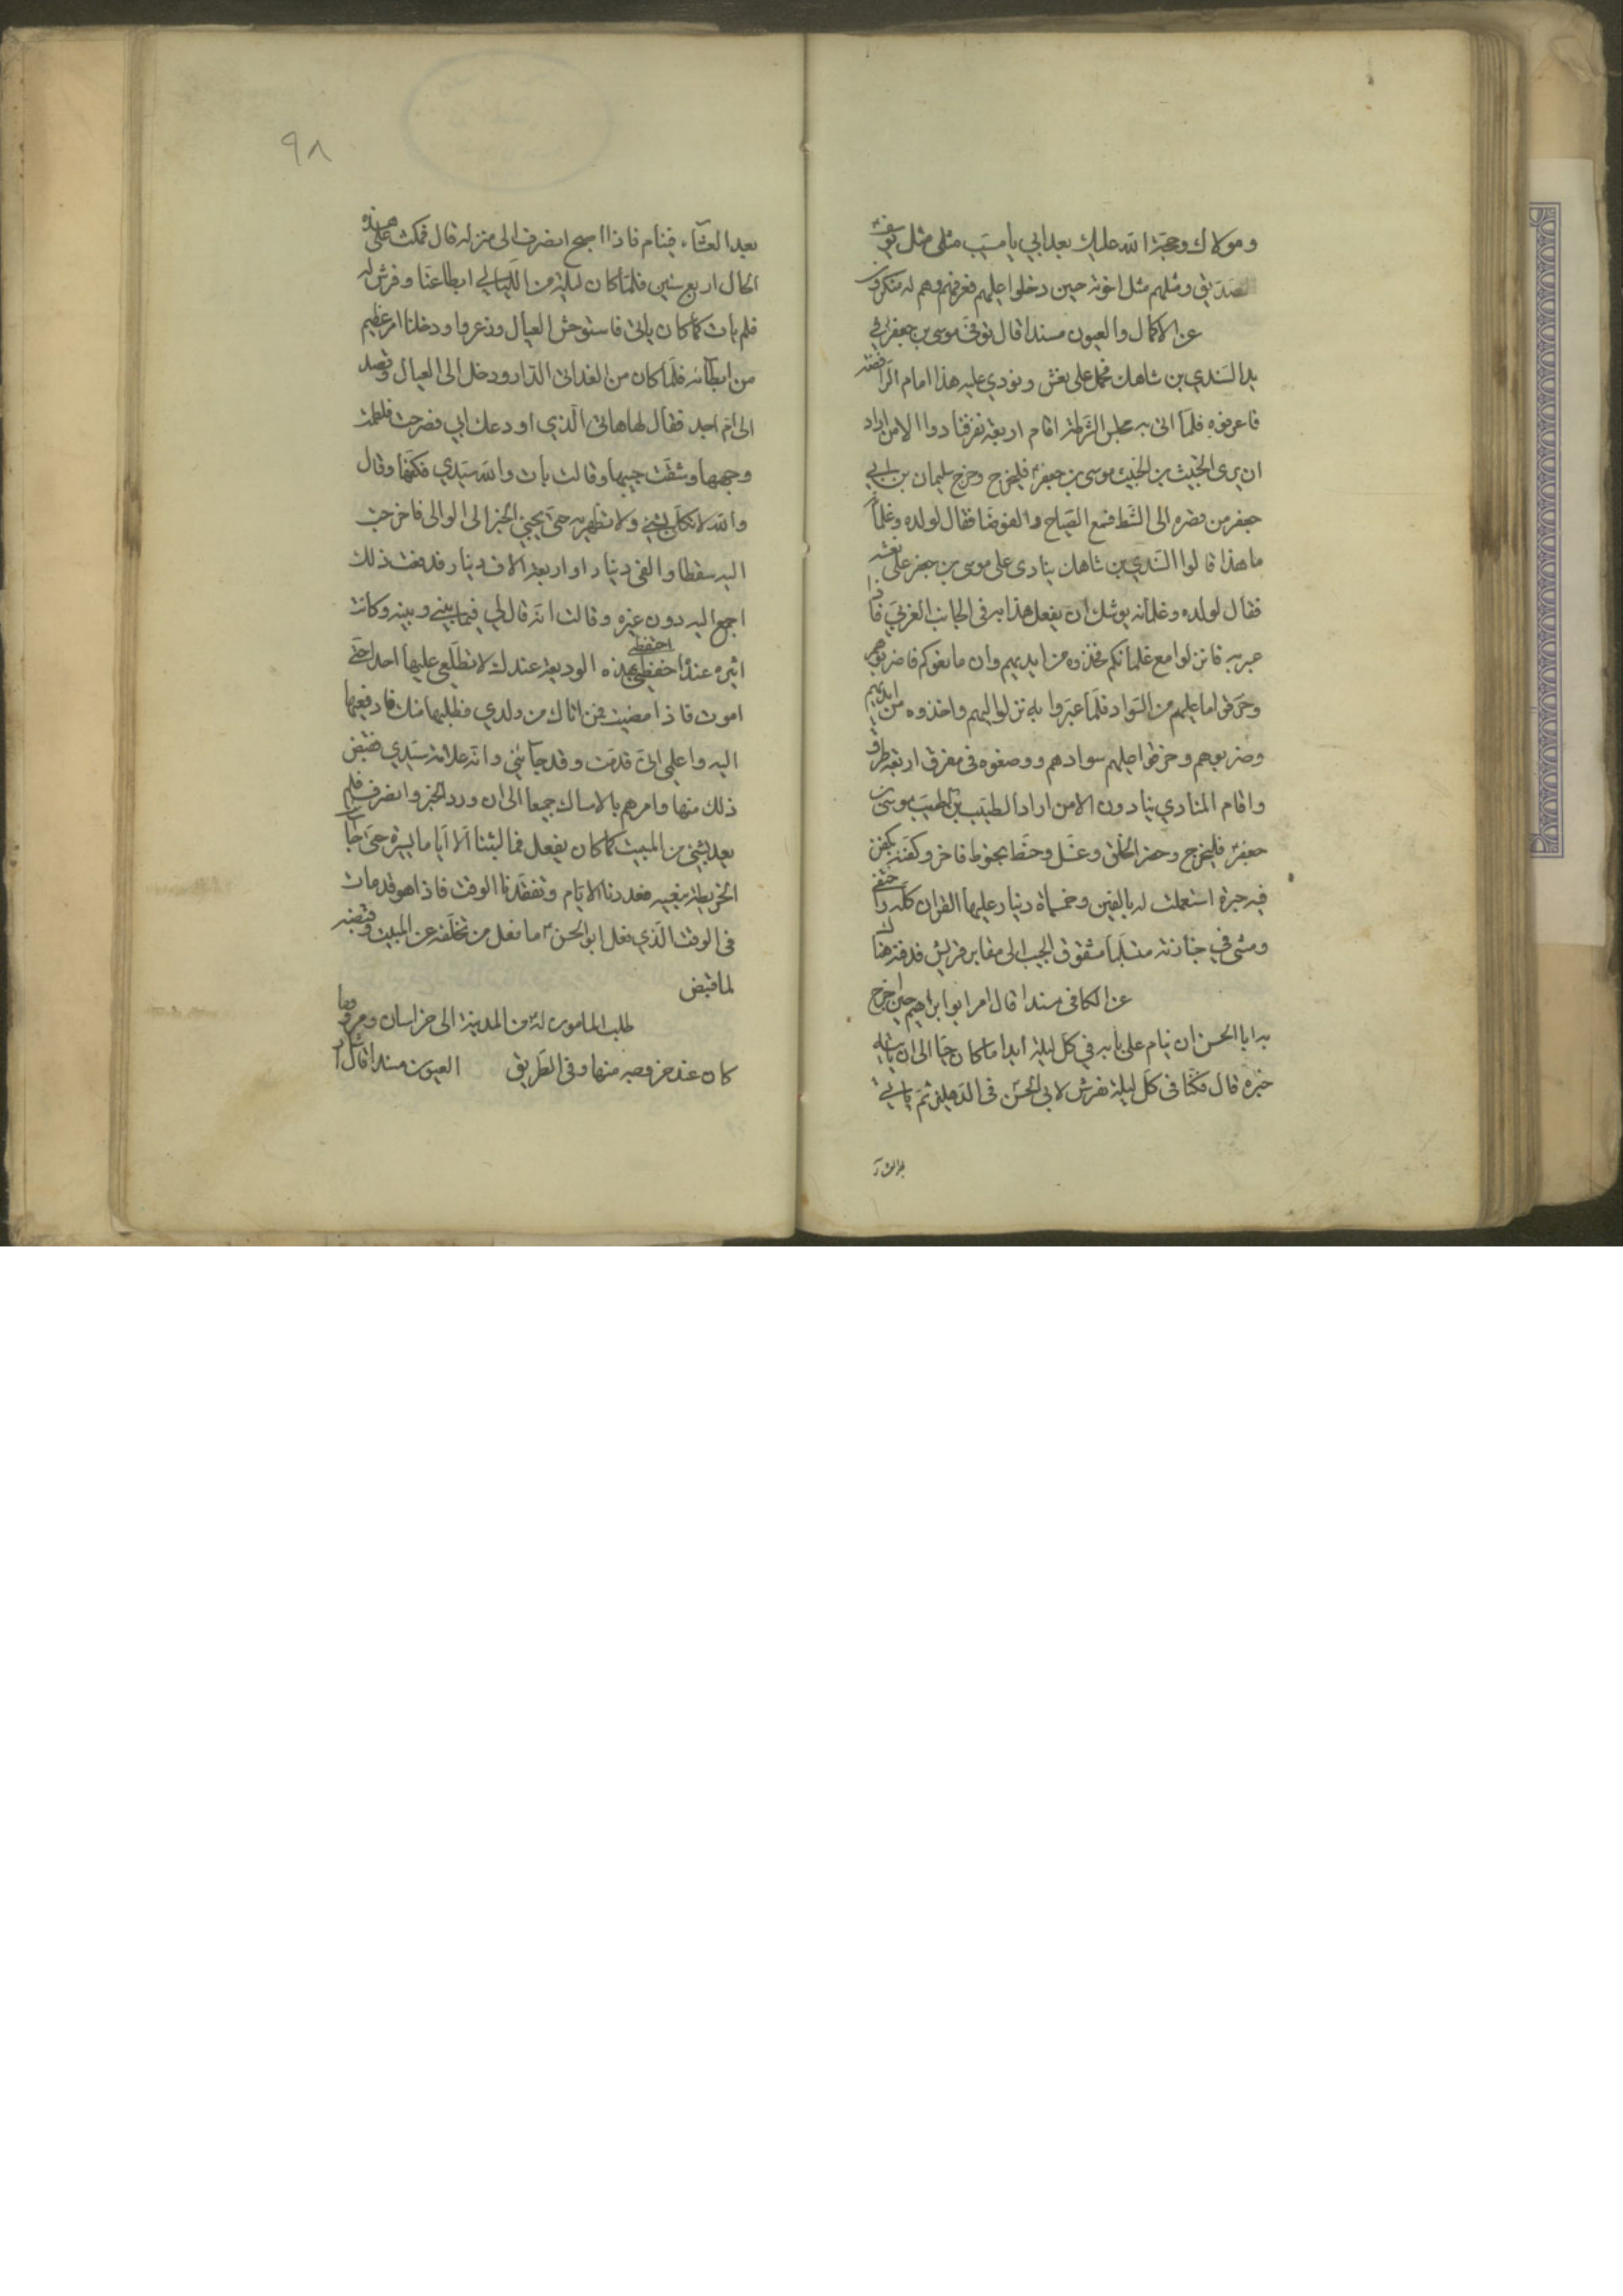 ومولاك وحجة الله عليك بعد ابي يا مسيب مثلي مثل يوسف
الصديق ومثلهم مثل اخوته حين دخلوا عليهم فعرفهم وهم له منكرون
عن الاكمال والعيون مسندا قال توفى موسى بن جعفر في
يد السندي بن شاهك فحمل على نعش ونودي عليه هذا امام الرافضة
فاعرفوه فلما اتى به مجلس الشرطة اقام اربعة نفر فنادوا الا من اراد
ان يرى الخبيث بن الخبيث موسى بن جعفر فليخرج وخرج سليمان بن ابي
جعفر من قصره الى الشط فسمع الصياح والغوضا فقال لولده وغلمانه
ما هذا قالوا السندي بن شاهك ينادى على موسى بن جعفر على نعشه
فقال لولده وغلمانه يوشك ان يفعل هذا به في الجانب الغربي فاذا
عبر به فانزلوا مع غلمانكم فخذوه من ايديهم وان مانعوكم فاضربوهم
وخرقوا ما عليهم من السواد فلما عبروا به نزلوا اليهم واخذوه من ايديهم
وضربوهم وخرقوا عليهم سوادهم ووضعوه في مفرق اربعة طرق
واقام المنادي ينادون الا من اراد الطيب بن الطيب موسى بن
جعفر فليخرج وحضر الخلق وغسل وحنط بحنوط فاخر وكفنه بكفن
فيه حبرة استعملت له بالفين وخمسماة دينار عليها القران كله واحتفى
ومشى في جنازته متسلبا مشقوق الجيب الى مقابر قريش فدفنه هناك
عن الكافي مسندا قال امر ابو ابراهيم حين اخرج
به ابا الحسن ان ينام على بابه في كل ليلة ابدا ما كان حيا الى ان ياتيه
خبره قال فكنا في كل ليلة نفرش لابي الحسن في الدهليز ثم ياتي
بعد العشاء
٩٨
بعد العشاء فينام فاذا اصبح انصرف الى منزله قال فمكث على هذه
الحال اربع سنين فلما كان ليلة من الليالي ابطا عنا وفرش له
فلم يات كما كان ياتى فاستوحش العيال وذعروا ودخلنا امر عظيم
من ابطائه فلما كان من الغد اتى الدار ودخل الى العيال وقصد
الى ام احمد فقال لها هاتى الذي اودعك ابي فصرخت ولطمت
وجهها وشقت جيبها وقالت مات والله سيدي فكفها وقال
والله لا تكلمي بشئ ولا تظهريه حتى يجيئ الخبر الى الوالى فاخرجت
اليه سفطا والفى دينار او اربعة الاف دينار فدفعت ذلك
اجمع اليه دون غيره وقالت انه قال لي فيما بيني وبينه وكانت
اثيرة عنده احفظي هذه الوديعة عندك لا تطلعي عليها احدا حتى
احتفظي
اموت فاذا مضيت فمن اتاك من ولدي فطلبها منك فادفعيها
اليه واعلمي انى قد مت وقد جائني والله علامة سيدي فقبض
ذلك منها وامرهم بالامساك جميعا الى ان ورد الخبر وانصرف فلم
يعد بشئ من المبيت كما كان يفعل فما لبثنا الا اياما يسيرة حتى جائت
الخريطة بنعيه فعددنا الايام وتفقدنا الوقت فاذا هو قد مات
في الوقت الذي فعل ابو الحسن ما فعل من تخلفه عن المبيت وقبضه
لما قبض
طلب المامون له من المدينة الى خراسان ومرو وما
كان عند خروجه منها وفى الطريق العيون مسندا قال